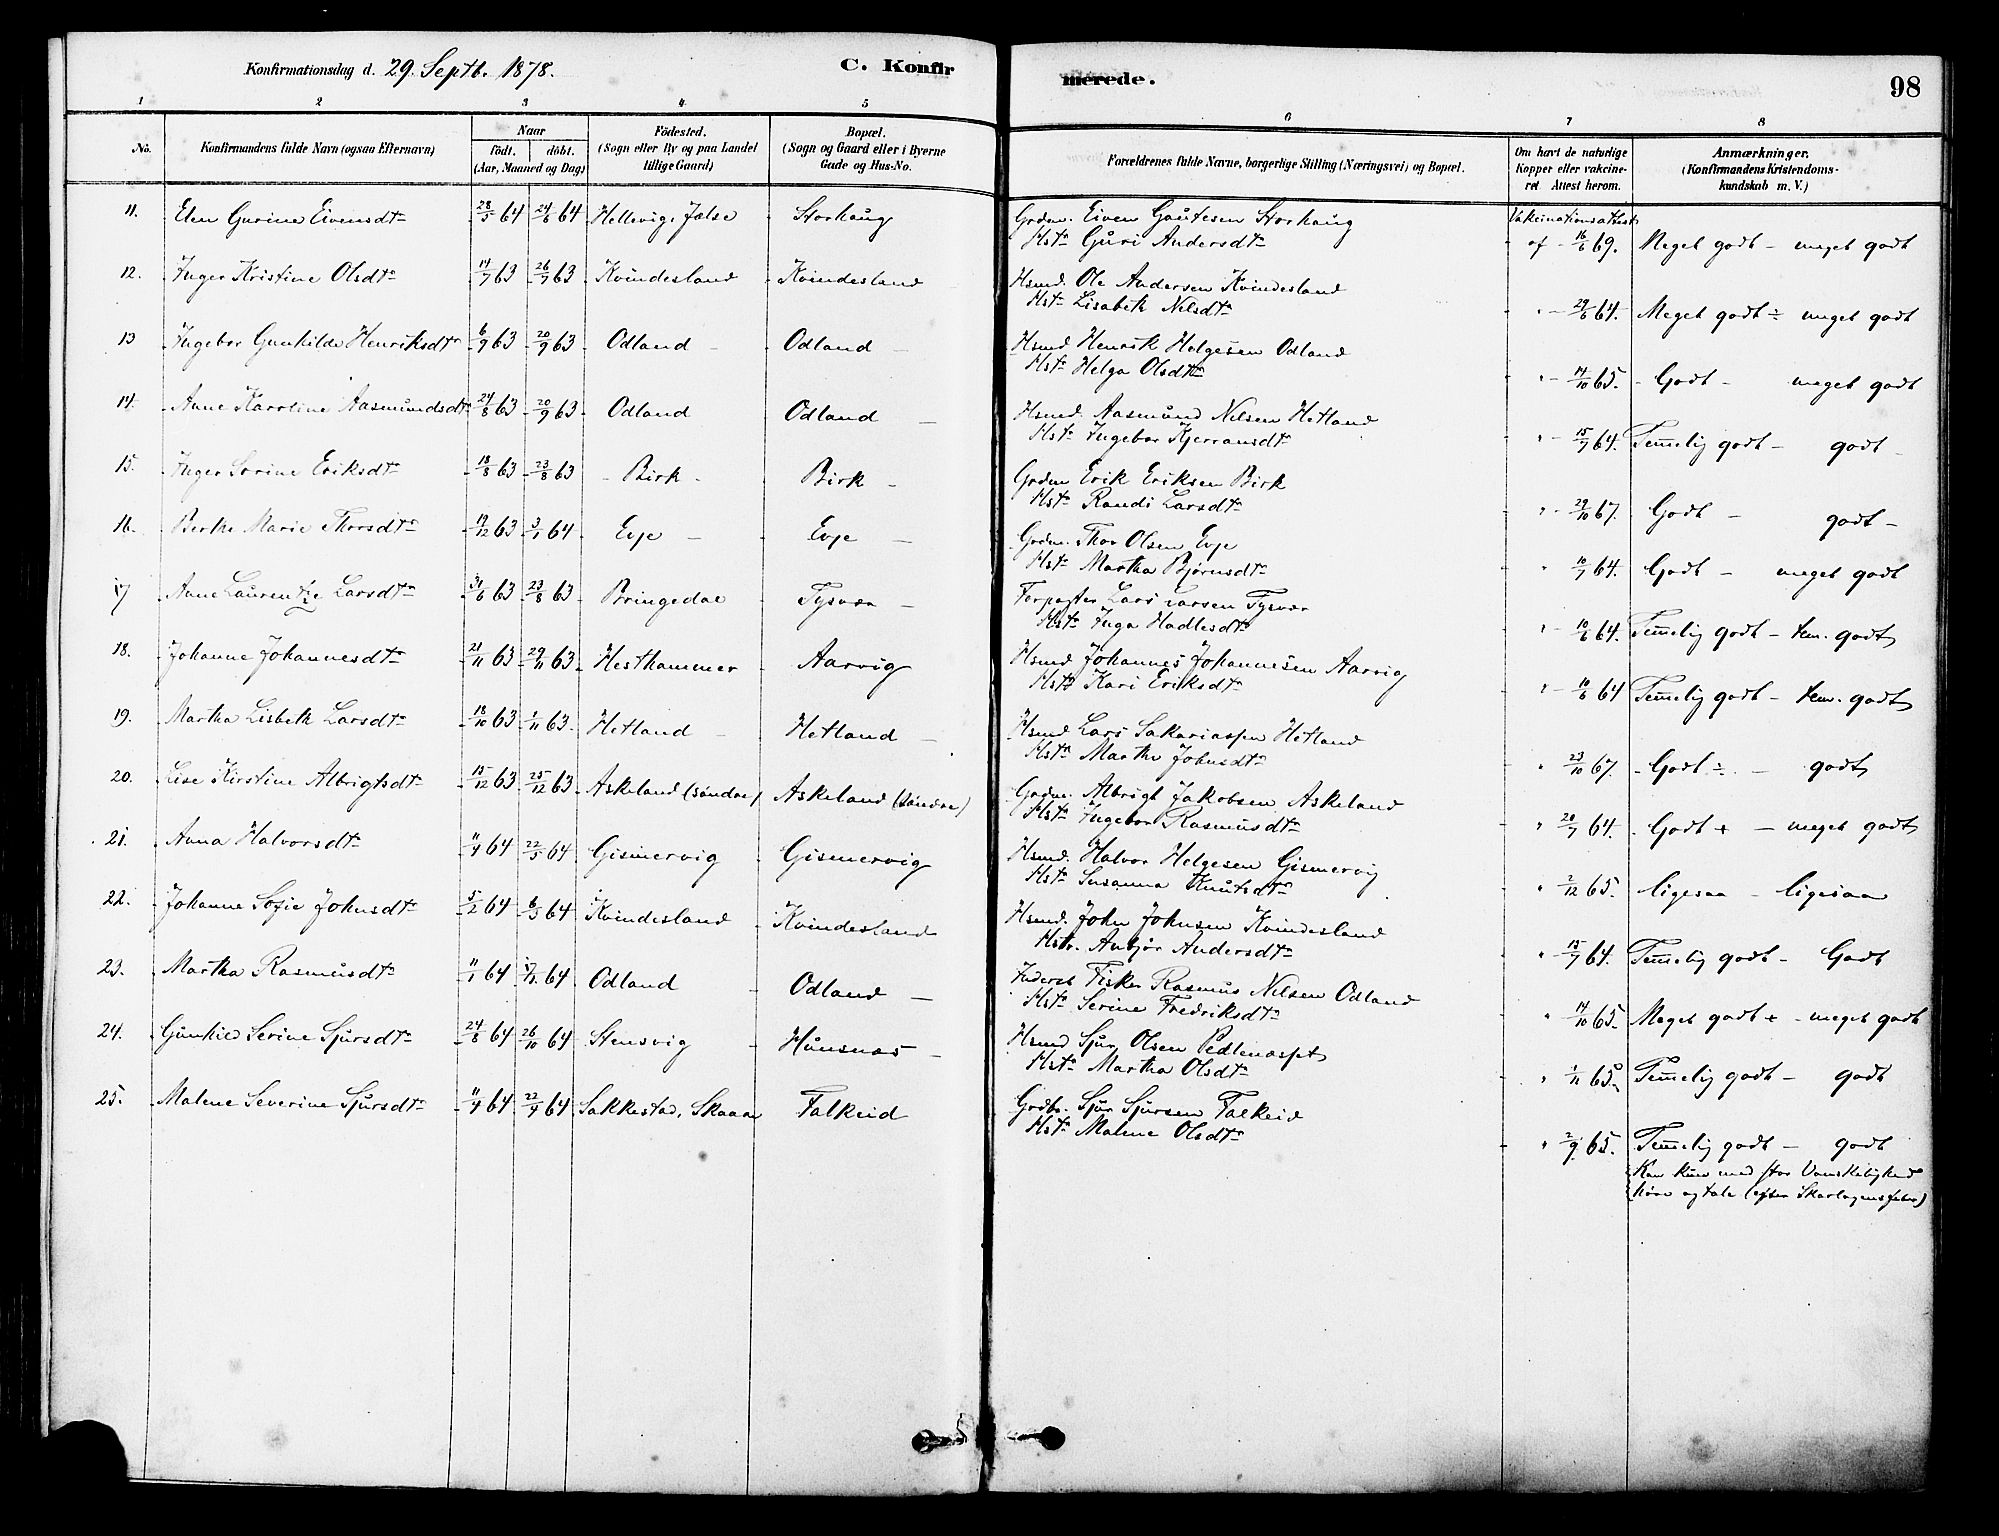 Konfirmationsdag d. 29. Septb. 1878.
C. Konfir
merede.
98
1 2 3 4 5 6 7 8
No. Konfirmandens fulde Navn (ogsaa Efternavn) Naar födt. döbt. (Aar, Maaned og Dag) Födested. (Sogn eller By og paa Landet tillige Gaard) Bopæl. (Sogn og Gaard eller i Byerne Gade og Hus-No. Forældrenes fulde Navne, borgerlige Stilling (Næringsvei) og Bopæl. Om havt de naturlige Kopper eller vakcineret. Attest herom. Anmærkninger. (Konfirmandens Kristendomskundskab m. V.)
11. Elen Gurine Eivensdtr 28/5 64 24/6 64 Hellevig, Jelse Storhaug Grdm. Eiven Gautesen Storhaug Vakcinationsattest
Hstr Guri Andersdtr af 16/6 69. Meget godt - meget godt
12. Inger Kristine Olsdtr 14/7 63 26/7 63 Kvindesland Kvindesland Hsmd. Ole Andersen Kvindesland
Hstr Lisabeth Nilsdtr " - 29/6 64. Meget godt ÷ meget godt
13 Ingebor Gunhilde Henriksdtr 6/9 63 20/9 63 Odland - Odland - Hsmd Henrik Helgesen Odland
Hstr Helga Olsdtr " - 14/10 65. - Godt - meget godt
14. Anne Karoline Aasmundsdtr 24/8 63 20/9 63 Odland Odland - Hsmd. Aasmund Nilsen Hetland
Hstr Ingebor Kjerransdtr " - 15/7 64. Temelig godt - godt -
15. Inger Sorine Eriksdtr 18/8 63 23/8 63 - Birk - Birk - Grdm Erik Eriksen Birk
Hstr Randi Larsdtr " - 29/10 67. Godt - godt -
16. Berthe Marie Thorsdtr 19/12 63 3/1 64 Evje - Evje - Grdm. Thor Olsen Evje
Hstr Martha Bjørnsdtr " 10/7 64. Godt - meget godt
17 Anne Laurentze Larsdtr 31/6 63 23/8 63 Bringedal Tysvær - Forpagter Lars Larsen Tysvær
Hstr Inga Hadlesdtr " - 10/6 64. Temelig godt - tem. godt
18. Johanne Johannesdtr 21/11 63 29/11 63 Hesthammer Aarvig Hsmd Johannes Johannesen Aarvig
Hstr Kari Eriksdtr " - 10/6 64 Temelig godt - tem. godt
19. Martha Lisbeth Larsdtr 18/10 63 1/11 63 Hetland - Hetland - Hsmd Lars Sakariassen Hetland
Hstr Marthe Johnsdtr " 23/10 67. - Godt ÷ - godt
20. Lise Kirstine Albrigtsdtr 15/12 63 25/12 63 Askeland (søndre) Askeland (søndre) Grdm. Albrigt Jakobsen Askeland
Hstr Ingebor Rasmusdtr " 20/7 64. - Godt + - meget godt
21. Anna Halvorsdtr 11/4 64 22/5 64 Gismervig Gismervig Hsmd. Halvor Helgesen Gismervig
Hstr Susanna Knutsdtr " 2/12 65. ligesaa - ligesaa
22. Johanne Sofie Johnsdtr 5/2 64 6/3 64 Kvindesland Kvindesland Hsmd. John Johnsen Kvindesland
Hstr. Anbjør Andersdtr " - 15/7 64. Temelig godt - Godt
23. Martha Rasmusdtr 11/1 64 64 Odland Odland - Inderst Fisker Rasmus Nilsen Odland
Hstr Serine Fredriksdtr " 14/10 65. Meget godt + - meget godt
24. Gunhild Serine Sjursdtr 24/8 64 26/10 64 Stensvig Hunsnæs - Hsmd Sjur Olsen
Hstr Martha Olsdtr " 1/11 65. Temelig godt - godt
25. Malene Severine Sjursdtr 11/4 64 22/4 64 Sakkestad, Skaare Falkeid Grdbr. Sjur Sjursen Falkeid
Hstr Malene Olsdtr " 2/9 65. Temelig godt - godt
Kan kun med stor Vanskelighed
høre og tale (efter Skarlagensfeber)